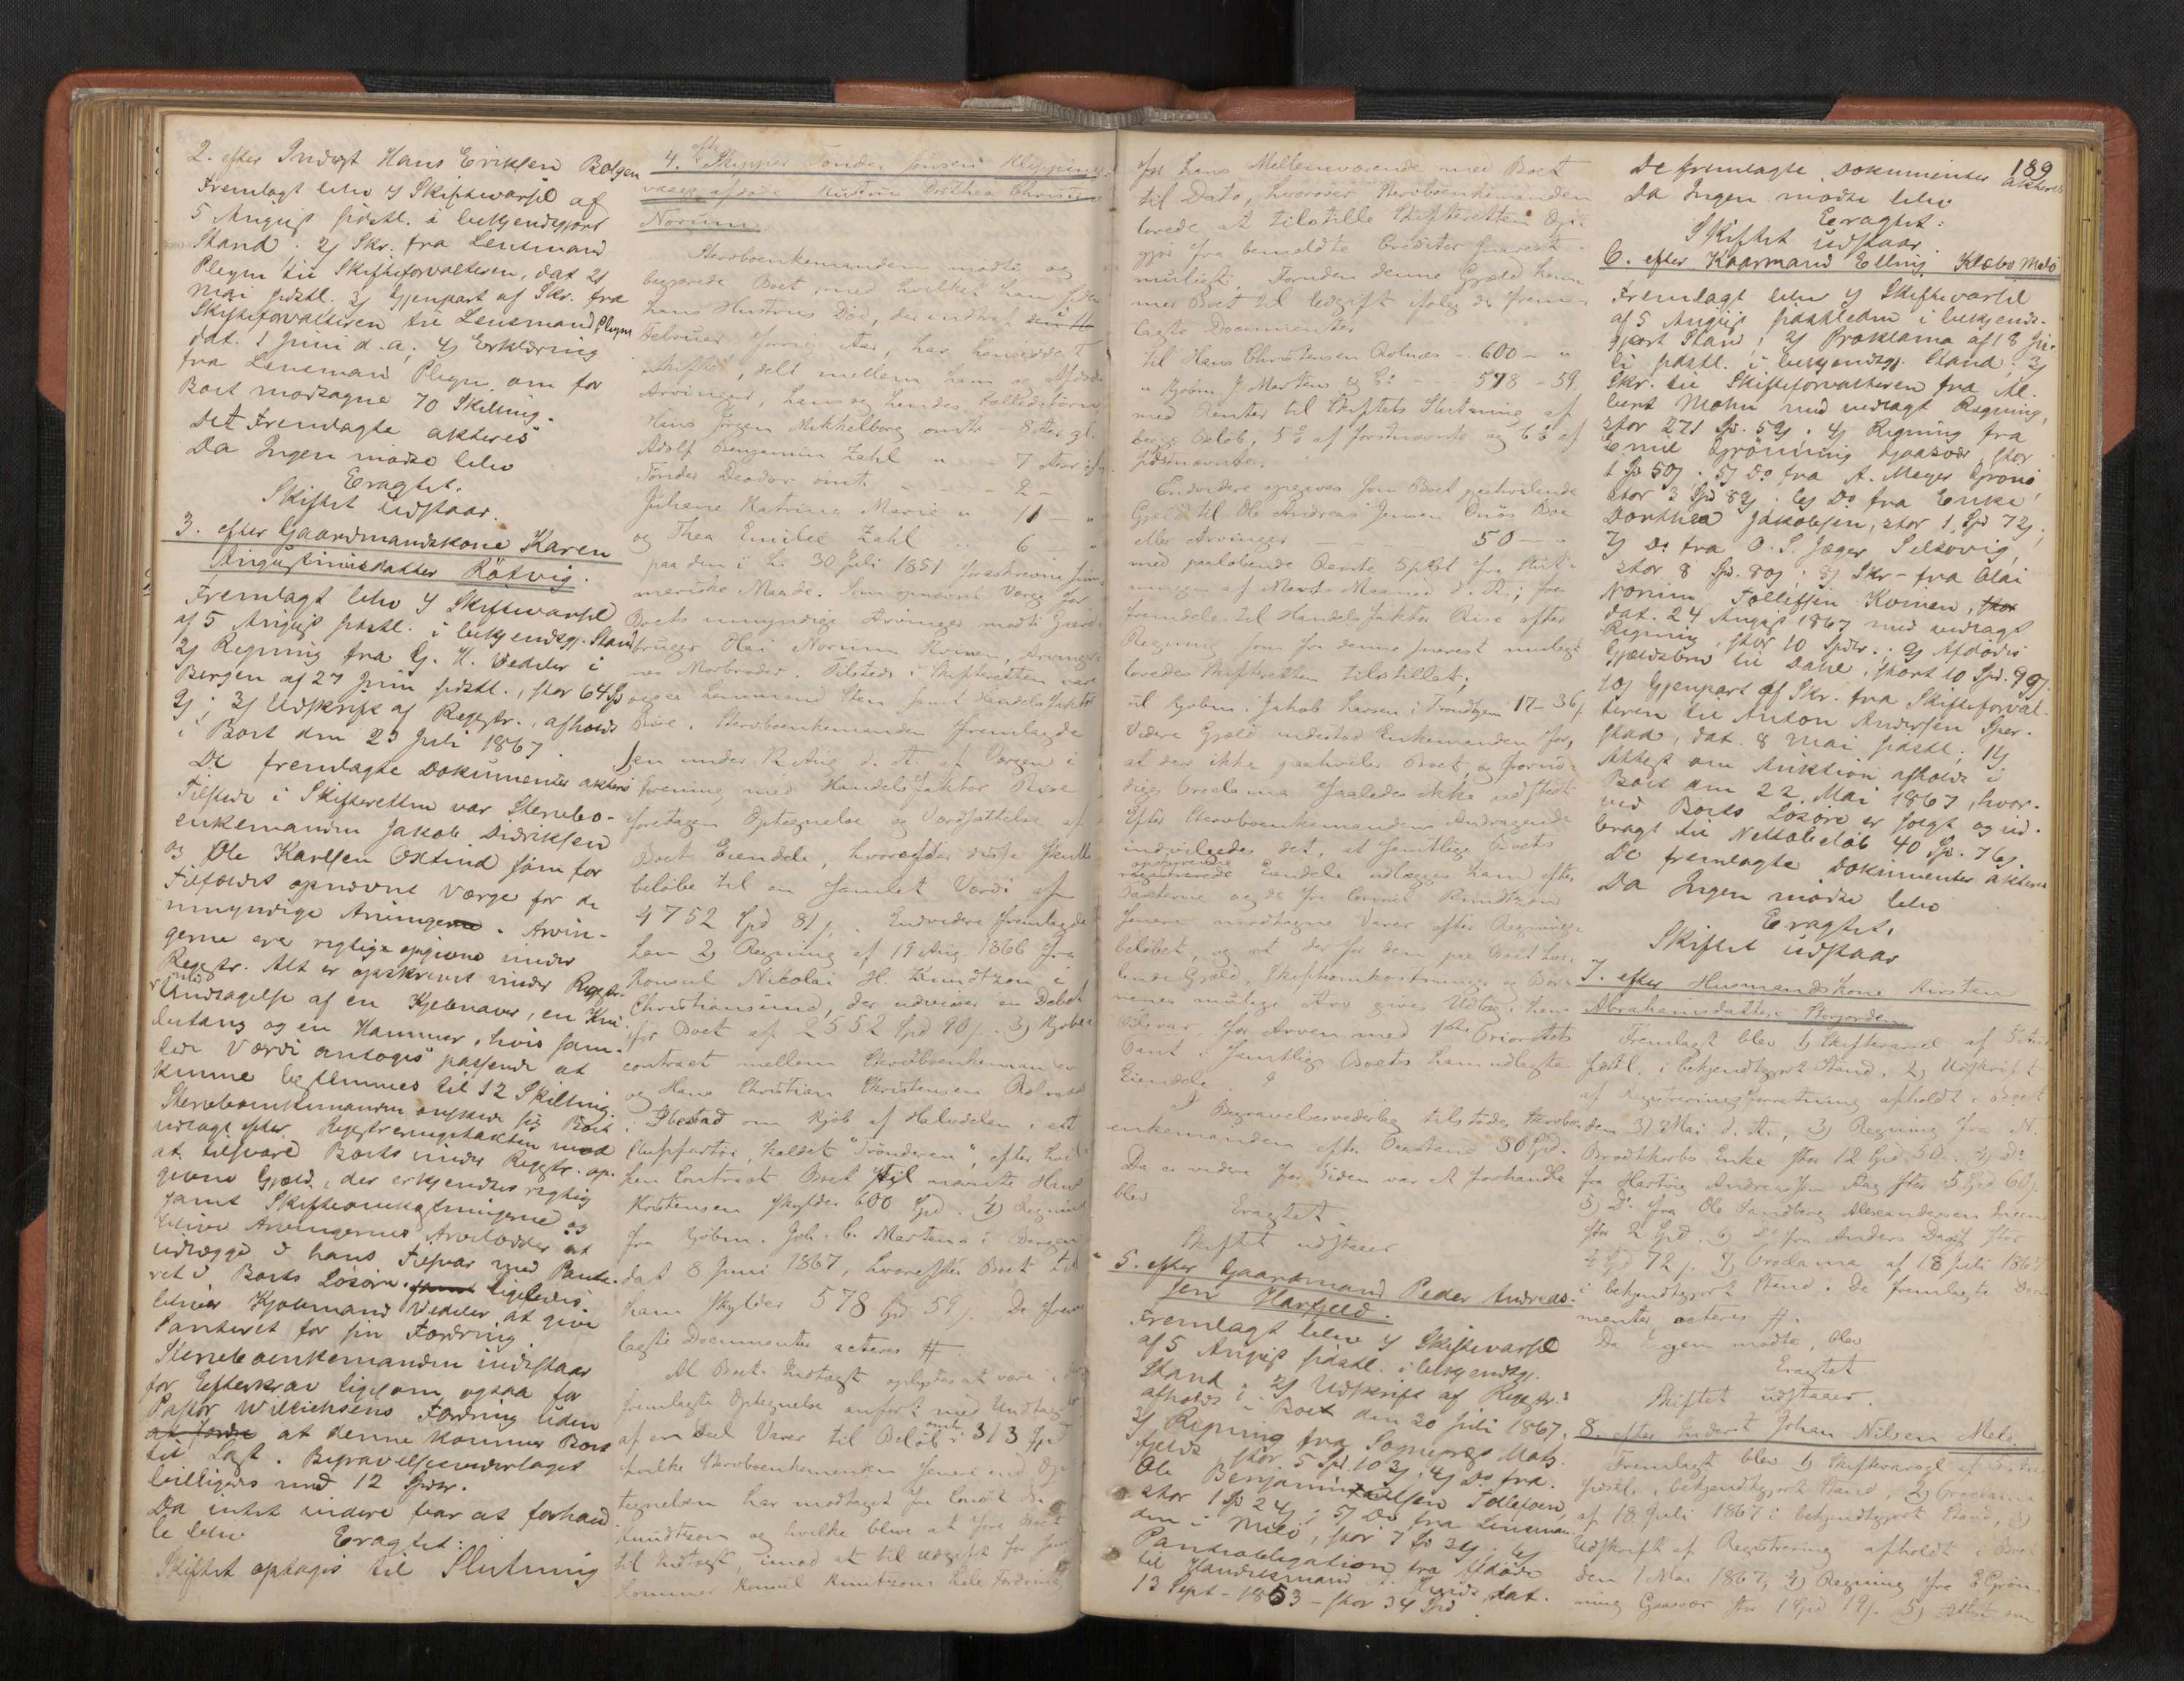 2. efter Inderst Hans Eriksen Bolgen
Fremlagt blev 1) Skiftevarsel af
5 August sidstl. i bekjendtgjort
Stand; 2) Skr. fra Lensmand
Pleym til Skifteforvalteren, dat 21
Mai sidstl. 3) Gjenpart af Skr. fra
Skifteforvalteren til Lensmand Pleym
dat. 1 Juni d. a; 4) Erklæring
fra Lensmand Pleym, om for
Boet modtagne 70 Skilling.
Det Fremlagte akteres
Da Ingen mødte blev
Eragtet.
Skiftet udstaar.
3. efter Gaardmandskone Karen
Augustinusdatter Rötvig.
Fremlagt blev 1) Skiftevarsel
af 5 August sidstl. i bekjendtgj. Stand
2) Regning fra G. H. Vedeler i
Bergen af 27 Juni sidstl., stor 64 Sp
2; 3) Udskrift af Regestr., afholdt
i Boet den 23 Juli 1867
De fremlagte Dokumenter akteres
Tilstede i Skifteretten var Stervbo-
enkemanden Jakob Didriksen
og Ole Karlsen Oxtind som for
Tilfældet opnævnt Værge for de
umyndige Arvingerne. Arvin-
gerne ere rigtige opgivne under
Regestr. Alt er opskrevet under Regestr.
med Undtagelse af en Kjelnaver, en Kni-
betang og en Hammer, hvis sam-
lede Værdi antoges passende at
kunne bestemmes til 12 Skilling.
Stervboenkemanden ønskede sig Boet
udlagt efter Regestreringstaxten mod
at tilsvare Boets under Regestr. op-
givne Gjæld, der erkjendtes rigtig
samt Skifteomkostningerne og
blive Arvingernes Arvelodder at
udlægge i hans Tilsvar med Pante-
ret i Boets Løsøre, samt ligeledes
bliver Kjøbmand Vedeler at give
Panteret for sin Fordring.
Stervboenkemanden indestaar
for Efterkrav ligesom ogsaa for
Pastor Willichsens Fordring uden
at denne kommer Boet
til Last. Begravelsesvederlaget
billigedes med 12 Spdr.
Da intet videre var at forhand
le blev Eragtet:
Skiftet optages til Slutning
4. efter Skipper Tønder Jensen Kleppings-
vaag afdøde Hustru Dorthea Christine
Norum.
Stervboenkemanden mødte og
begjærede Boet, med hvilket han siden
hans Hustrus Død, der indtraf i
Februar forrige Aar, har henseddet
uskiftet, delt mellem ham og Afdødes
Arvinger, hans og hendes Fællesbørn,
Hans Jørgen Mikkelborg omtr - 8 Aar gl.
Adolf Benjamin Zahl " - 7 Aar gl.
Tønder Deodor omt. - - - 2 -
Juliane Katrina Marie " 11 - "
og Thea Emilie Zahl .. 6 - "
paa den i L. 30 Juli 1851 foreskrevne sum-
mariske Maade. Som opnævnt Værge for
Boets umyndige Arvinger mødte Gaard-
bruger Olai Norum Kvinen, Arvinger-
nes Morbroder. Tilstede i Skifteretten var
ogsaa Lensmand Sten samt Handelsfaktor
Rise. Stervboenkemanden fremlagde
en under 12 Aug. d. A. af Værgen i
Forening med Handelsfaktor Rise
foretagen Optegnelse og Værdsættelse af
Boets Eiendele, hvorefter disse skulle
beløbe til en samlet Værdi af
4752 Spd 81 s. Endvidere fremlagde
han 2) Regning af 19 Aug 1866 fra
Konsul Nikolai H. Knudtzon i
Christiansund, der udviser en Debet
for Boet af 2552 Spd 90 s. 3) Kjøbe-
contract mellem Stervboenkemanden
og Hans Christian Christensen Rolnæs
i Ibestad om Kjøb af Halvdelen i et
Clupfartøi, kaldet "Trønderen", efter hvil-
ken Contract Boet til nævnte Hans
Kristensen skylder 600 Spd. 4) Regning
fra Kjøbm. Joh. C. Martens i Bergen
dat 8 Juni 1867, hvorefter Boet til
ham skylder 578 Spd. 59 s. De frem-
lagte Documenter acteres #.
Al Boets Indtægt oplystes at være i den
fremlagte Optegnelse anført med Undtagelse
af en Deel Varer til Beløb omtr 313 Spd
hvilke Stervboenkemanden senere end Op-
tegnelsen har modtaget fra Consul
Knudtzon og hvilke blive at føre Boet
til Indtægt, imod at til Udgift for samme
kommer Konsul Knudtzons hele Fordring
for hans Mellemværende med Boet
til Dato, hvorover Stervboenkemanden
lovede at tilstille Skifteretten Op-
gjør fra bemeldte Creditor snarest
muligt. Foruden denne Gjæld kom-
mer Boet til Udgift ifølge de frem-
lagte Documenter
til Hans Christensen Rolnæs - 600 - "
" Kjøbm J. Martens & Co - - 578 - 59.
med Renter til Skiftets Slutning af
begge Beløb, 5 % af førstnævnte og 6 % af
sidstnævnte.
Endvidere opgaves som Boet paahvilende
Gjæld til Ole Andreas Jensen Bnøs Boe
eller Arvinger - - - - 50 - "
med paaløbende Rente 5 pCt fra Slut-
ningen af Marts Maaned d. A.; fra
fremdeles til Handelsfaktor Rise efter
Regning som fra denne snarest muligt
lovedes Skifteretten tilstillet;
til Kjøbm. Jakob Larsen i Trondhjem 17 - 36 s.
Videre Gjæld indestod Enkemanden for,
at der ikke paahviler Boet, og fornø-
diges Proclama saaledes ikke udstedt
Efter Stervboenkemandens Andragende
indvilgedes det, at samtlige Boets
opskrevne Eiendele udlægges ham efter
Taxterne og de fra Consul Knudtzon
senere modtagne Varer efter Regnings-
beløbet, og at der for den paa Boet hvi-
lende Gjæld, Skifteomkostninger og Bør-
nenes mulige Arv gives Udlæg i hans
Tilsvar for Arven med 1ste Prioritets
Pant i samtlige Boets ham udlagte
Eiendele.
I Begravelsesvederlag tilstodes Stervbo-
enkemanden efter Paastand 30 Spd.
Da ei videre for Tiden var at forhandle
blev
Eragtet
Skiftet udstaaer
5. efter Gaardmand Peder Andreas-
sen Harfjeld.
Fremlagt blev 1) Skiftevarsel
af 5 August sidstl. i bekjendtgj.
Stand; 2) Udskrift af Regestr:
afholdt i Boet den 20 Juli 1867.
3) Regning fra Sognepræst Mats-
feldt stor 5 Spd. 103; 4) Do fra
Ole Benjamin Tollefsen,
stor 1 Sp 24; 5) Do fra Lensman-
den i Melø, stor 7 Sp 24; 6)
Panteobligation fra Afdøde
til Handelsmand A. Lund, dat.
13 Sept - 1863 - stor 34 Spd
189
De fremlagte Dokumenter akteres
Da Ingen mødte blev
Eragtet:
Skiftet udstaar.
6. efter Kaarmand Elling Klæbo Melø
Fremlagt blev 1) Skiftevarsel
af 5 August sidstleden i bekjendt-
gjort Stand; 2) Proklama af 18 Ju-
li sidstl. i bekjendtgj. Stand; 3)
Skr. til Skifteforvalteren fra Al-
bert Mohn med vedlagt Regning,
stor 271 Sp. 59; 4) Regning fra
Emil Grönning Gjaasvær, stor
1 Sp 50; 5) Do fra A. Meyer Grønø
stor 3 Spd 82; 6) Do fra Enke
Dorthea Jakobsen, stor 1 Spd 72;
7) Do fra O. S. Jæger Selsovig,
stor 8 Sp. 80; 8) Skr - fra Olai
Norum Tollefsen Kvinen,
dat. 24 August 1867 med vedlagt
Regning, stor 10 Spdr.; 9) Afdødes
Gjældsbrev til Dahl, stort 10 Spd. 99;
10) Gjenpart af Skr. fra Skifteforval-
teren til Anton Andersen Sper-
stad, dat. 8 Mai sidstl; 11)
Attest om Auktion afholdt i
Boet den 22 Mai 1867, hvor-
ved Boets Løsøre er solgt og ud-
bragt til Nettobeløb 40 Sp. 76.
De fremlagte Dokumenter akteres
Da Ingen mødte blev
Eragtet.
Skiftet udstaar
7. efter Husmandskone Kirsten
Abrahamsdatter Storjorden
Fremlagt blev 1) Skiftevarsel af 5 Aug
sidstl. i bekjendtgjort Stand, 2) Udskrift
af Registreringsforretning afholdt i Boet
den 31 Mai d. A., 3) Regning fra N.
Brodtkorbs Enke stor 12 Spd 50. 4) Do
fra Hartvig Andreassen Aag stor 5 Spd 60 s.
5) Do fra Ole Sandberg Alexandersen Enem
stor 2 Spd. 6) Do fra Anders Dass stor
4 Spd 72 s. 7) Proclama af 18 Juli 1867
i bekjendtgjort Stand. De fremlagte Docu-
menter acteres #.
Da Ingen mødte, blev
Eragtet
Skiftet udstaaer.
8. efter Inderst Johan Nilsen Melø.
Fremlagt blev 1) Skiftevarsel af 5 Aug.
sidstl. i bekjendtgjort Stand, 2) Proclama
af 18 Juli 1867 i bekjendtgjort Stand, 3)
Udskrift af Registrering afholdt i Boet
den 1 Mai 1867, 4) Regning fra E. Grön-
ning Gaasvær stor 1 Spd 19 s. 5) Attest om